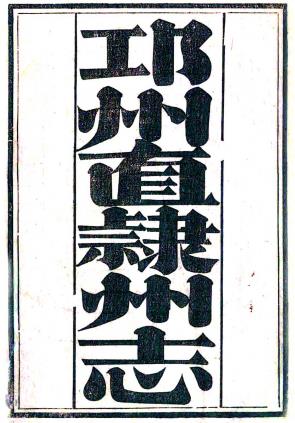 邛州直隸州志